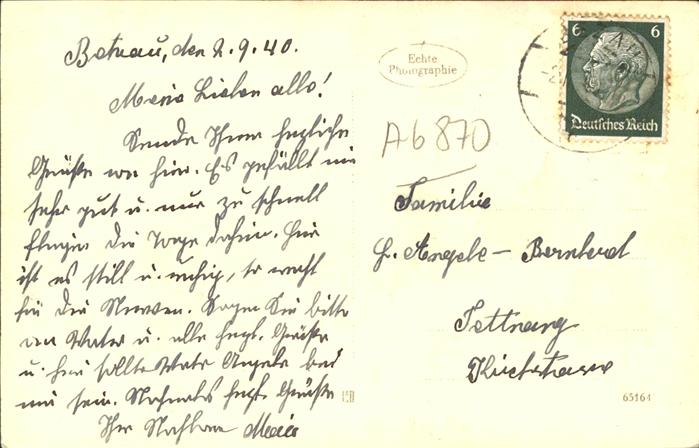 Betnau, den 2.9.40.
Meine Lieben alle!
Sende Ihnen herzliche
Grüße von hier. Es gefällt mir
sehr gut u. nur zu schnell
fliegen die Tage dahin. Hier
ist es still u. ruhig, so recht
für die Nerven. Sagen Sie bitte
an Vater u. alle herzl. Grüße
u. hier sollte Vater Angele bei
mir sein. Nochmals herzl. Grüße
Ihr Nachbar
Echte
Photographie
6 6
Deutsches Reich
A6 870
Familie
H. Angele - Bernhard
Tettnang
65164